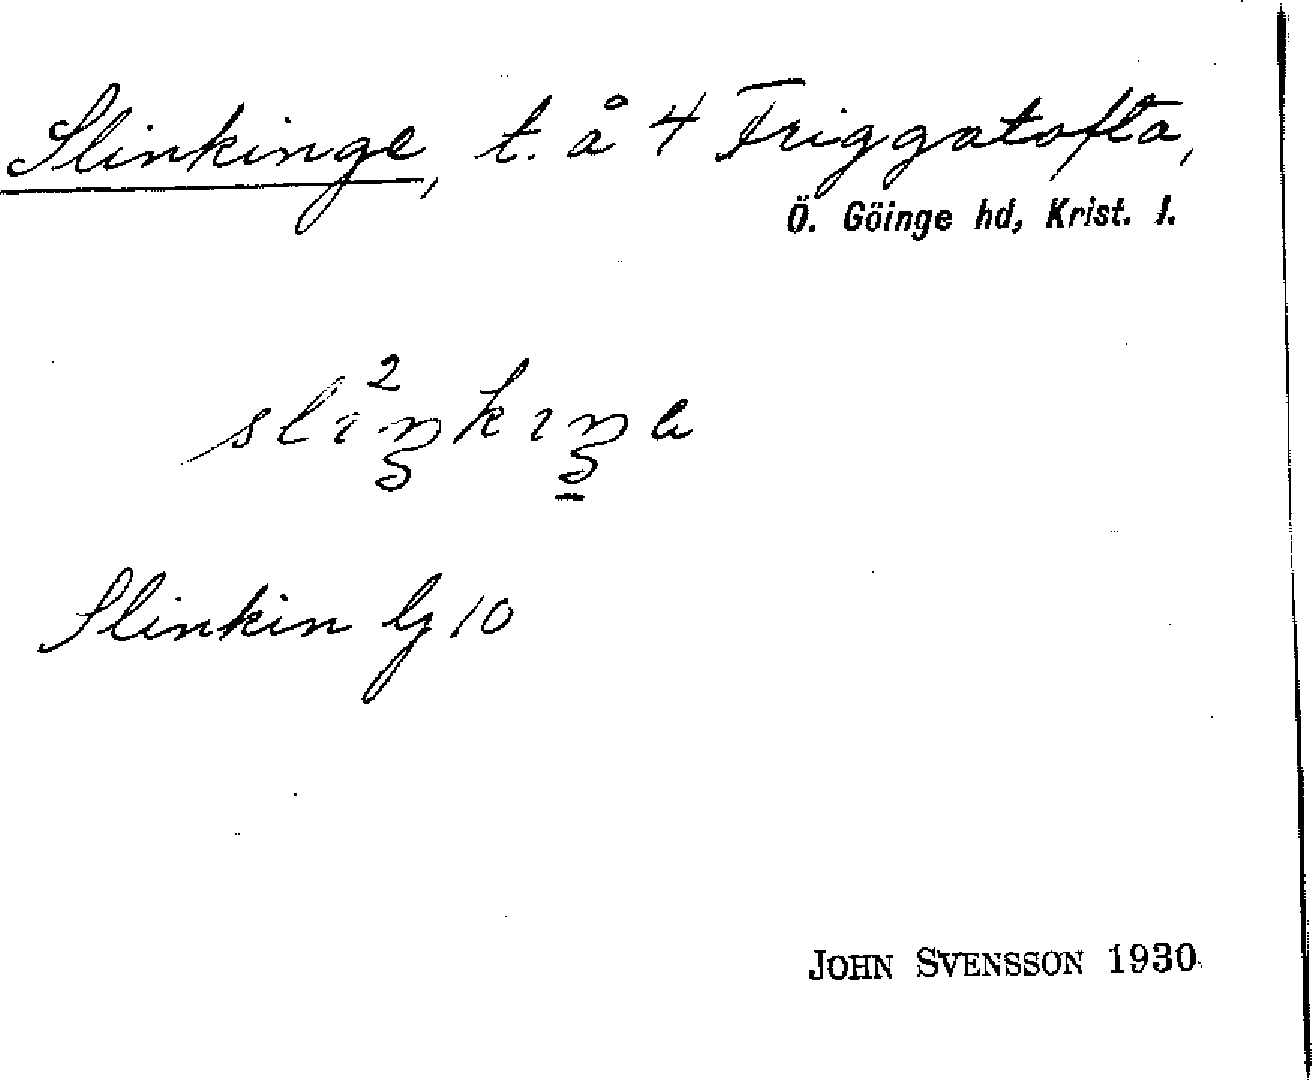 Slinkinge, t. å 4 Friggatofta,
Ö. Göinge hd, Krist. l.
Slinkin lg 10
JOHN SVENSSON 1930